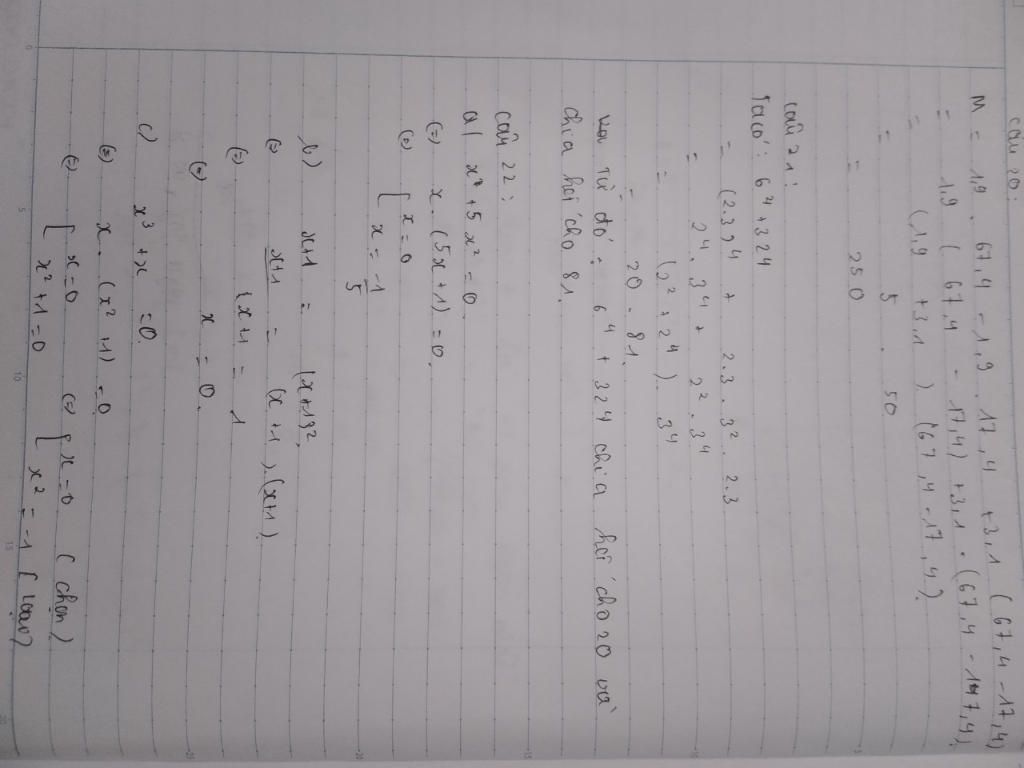 Câu 20:
M = 1,9 . 67,4 - 1,9 . 17,4 + 3,1 ( 67,4 - 17,4)
= 1,9 ( 67,4 - 17,4) + 3,1 . (67,4 - 17,4)
= (1,9 + 3,1 ) (67,4 - 17,4)
= 5 . 50
= 250
Câu 21:
Ta có: 6⁴ + 324
= (2.3)⁴ + 2.3 . 3² . 2.3
= 2⁴ . 3⁴ + 2² . 3⁴
= (2² + 2⁴) . 3⁴
= 20 . 81.
Từ đó: 6⁴ + 324 chia hết cho 20 và
chia hết cho 81.
Câu 22:
a) + 5x² = 0.
(=) x. (5x + 1) = 0.
(=) [ x = 0
x = -1/5
b) x+1 = (x+1)².
(=) x+1 = (x+1).(x+1)
(=) (x+1 = 1
(=) x = 0.
c) x³ + x = 0.
(=) x. (x² + 1) = 0
(=) [ x = 0 (=) [ x = 0 ( chọn )
x² + 1 = 0 x² = -1 ( loại)